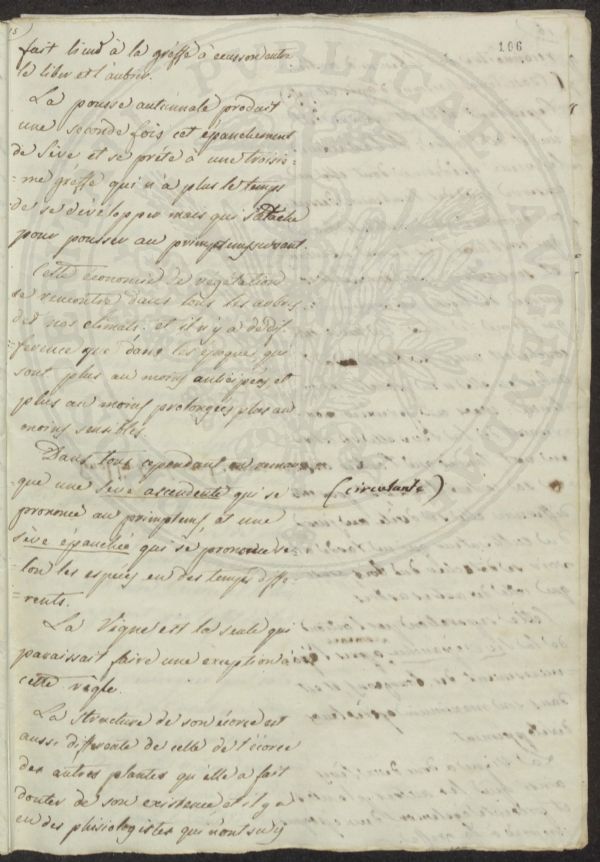 106
fait lieu à la gréffe à ecusson entre
le liber et l'aubier.
La pousse autumnale produit
une seconde fois cet épanchement
de sève et se prête à une troisiè=
=me gréffe qui n'a plus le temps
de se développer mais qui s'attache
pour pousser au primptems suivant.
Cette économie de végétation
se rencontre dans tous les arbres
de nos climats. et il n'y a de dif
ference que dans les époques qui
sont plus au moins anticipées et
plus au moins prolongées plus au
moins sensibles.
Dans tous cependant on remar
que une sève ascendente qui se (circulante)
prononce au primptems, et une
sève épanchée qui se prononce se=
lon les espèces en des temps diffe=
=rents.
La Vigne est la seule qui
paraissait faire une exeption à
cette règle.
La structure de son écorce est
aussi differente de celle de l'écorce
des autres plantes qu'elle a fait
douter de son existence et il y a
eu des phisiologistes qui n'ont
PVBLICAE